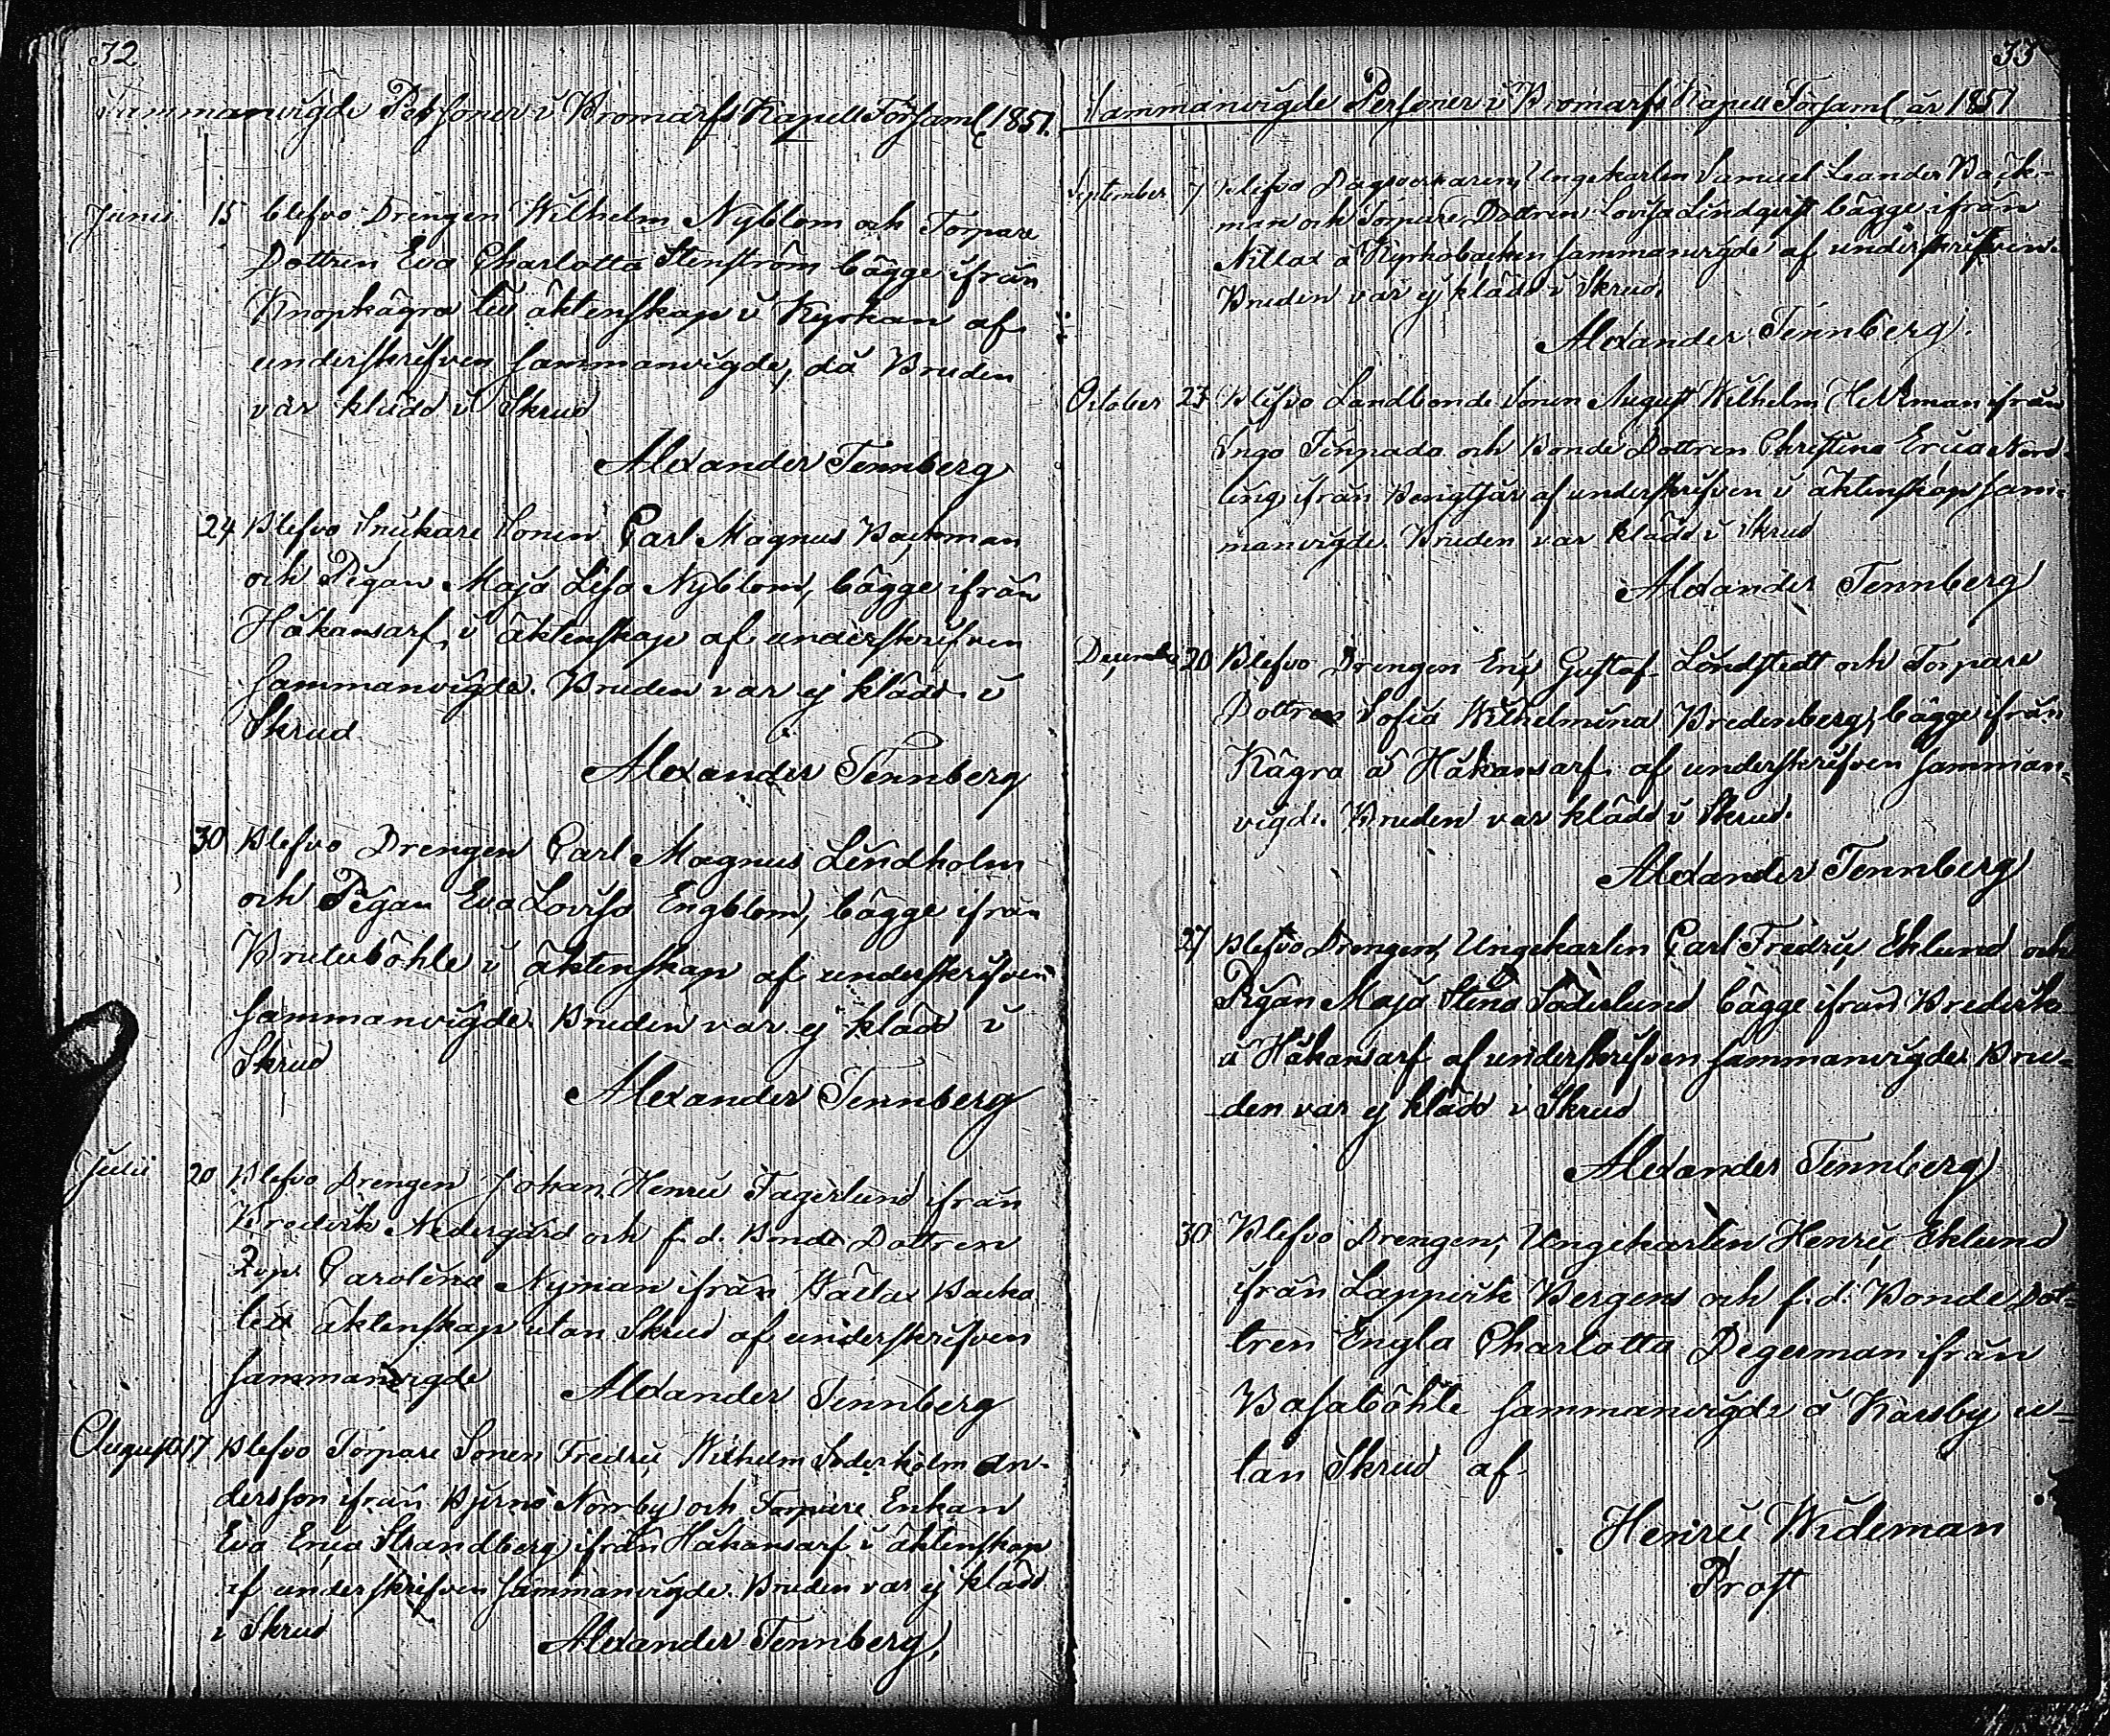 32
Sammanvigde Personer i Bromarfs Kapell Församl 1851.
Junii 15 blefvo Drengen Wilhelm Nyblom och Torpare
Dottren Eva Charlotta Stenström bägge ifrån
Knopkägra till äktenskap i Kyrkan af
underskrifven sammanvigde, då Bruden
var klädd i Skrud
Alexander Tennberg
24 Blefvo Snickare Sonen Carl Magnus Backman
och Pigan Maja Lisa Nyblom, bägge ifrån
Håkansarf, i äktenskap af underskrifven
sammanvigde. Bruden var ej klädd i
Skrud
Alexander Tennberg
30 Blefvo Drengen Carl Magnus Lindholm
och Pigan Eva Lovisa Engblom, bägge ifrån
Bruteböhle i äktenskap af underskrifven
sammanvigde. Bruden var ej klädd i
Skrud
Alexander Tennberg
Julii 20 Blefvo Drengen Johan Henric Fagerlund ifrån
Bredvik Nedergård och f. d. Bonde Dottren
Carolina Nyman ifrån Backa
till äktenskap utan Skrud af underskrifven
sammanvigde
Alexander Tennberg
Augusti 17 Blefvo Torpare Sonen Fredric Wilhelm Söderholm An-
dersson ifrån Björnö Norrby och Torpare Enkan
Eva Erica Strandberg ifrån Håkansarf i äktenskap
af underskrifven sammanvigde. Bruden var ej klädd
i Skrud
Alexander Tennberg
33
Sammanvigde Personer i Bromarfs Kapell Församl år 1851
September 7 Blefvo Dagsverkaren, Ungekarlen Samuel Leander Back-
man och Torpare Dottren Lovisa Lindqvist bägge ifrån
Nitlax å Kyrkobacken sammanvigde af underskrifven.
Bruden var ej klädd i Skrud.
Alexander Tennberg
October 23 Blefvo Landbonde Sonen August Wilhelm Hellman ifrån
Ingo och Bonde Dottren Christina Erica Nord-
ling, ifrån Bengtsår af underskrifven i äktenskap sam-
manvigde. Bruden var klädd i Skrud
Alexander Tennberg
December 20 Blefvo Drengen Eric Gustaf Lindstedt och Torpare
Dottren Sofia Wilhelmina Bredenberg, bägge ifrån
Kägra å Håkansarf af underskrifven samman-
vigde. Bruden var klädd i Skrud.
Alexander Tennberg
27 Blefvo Drengen, Ungekarlen Carl Fredric Eklund och
Pigan Maja Stina Söderlund bägge ifrån Bredvik
å Håkansarf af underskrifven sammanvigde. Bru-
den var ej klädd i Skrud
Alexander Tennberg
30 Blefvo Drengen, Ungekarlen Henric Eklund
ifrån Lappvik Bergens och f. d. Bonde Dot-
tren Engla Charlotta Degerman ifrån
Basaböhle sammanvigde å Karsby u-
tan Skrud af
Henric Wideman
Prost